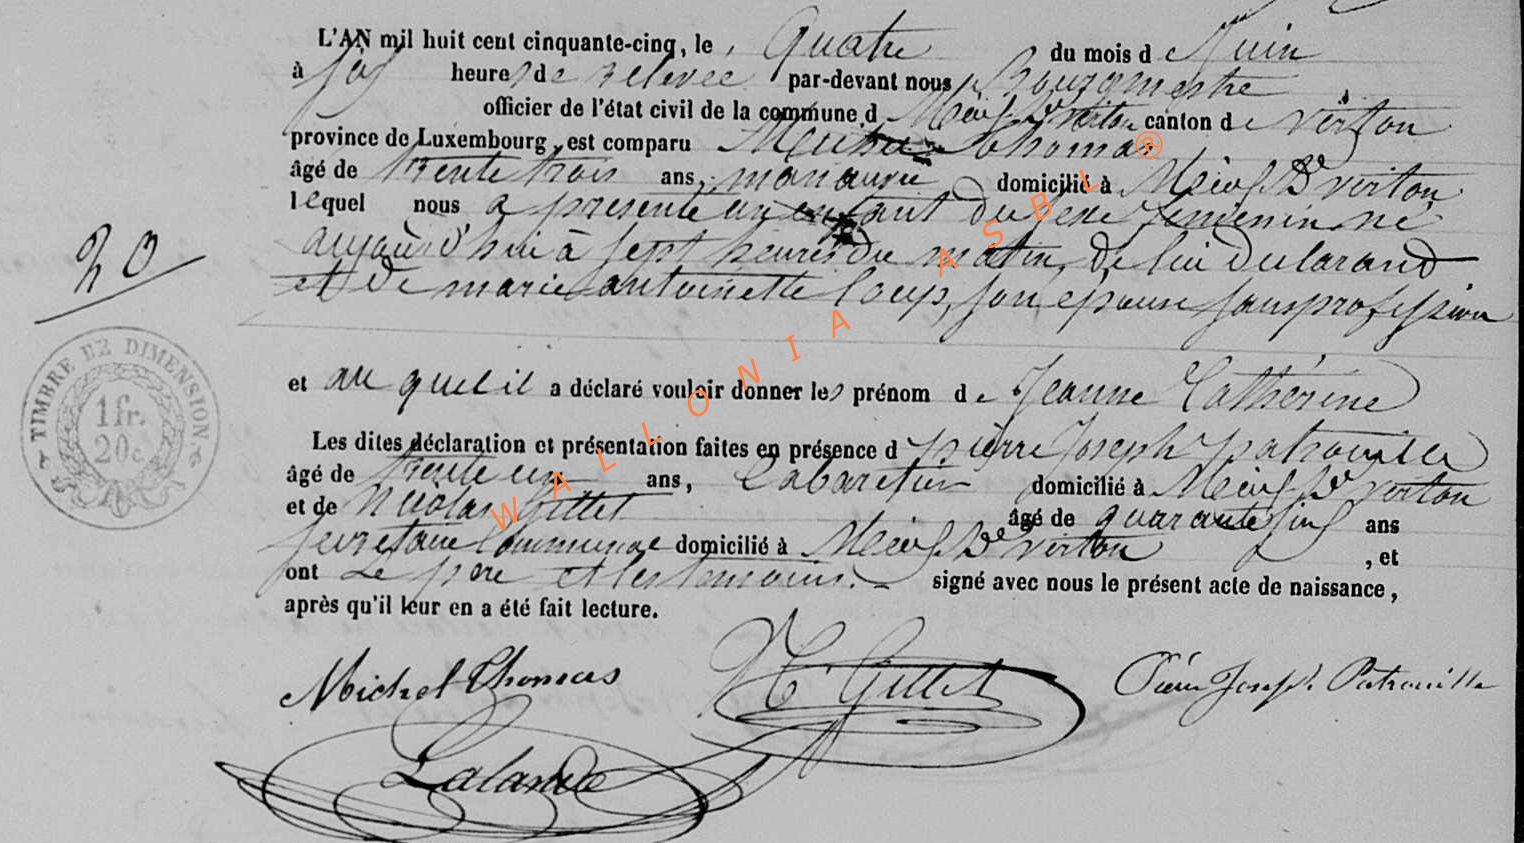 L'AN mil huit cent cinquante-cinq, le Quatre du mois d Juin
à six heures de relevée par-devant nous Bourgmestre
officier de l'état civil de la commune d Meix Dt virton canton de virton
province de Luxembourg, est comparu Thomas
âgé de trente trois ans, manœuvre domicilié à Meix Dt virton
lequel nous a presenté un enfant du sexe feminin né
aujourd'hui à sept heures du matin, de lui Déclarant
et de marie antoinette Loup, son epouse sans profession
20
TIMBRE DE DIMENSION.
1 fr.
20 c.
et au quel il a déclaré vouloir donner les prénom de Jeanne Cathérine
Les dites déclaration et présentation faites en présence d pierre Joseph patrouille
âgé de trente un ans, Cabaretier domicilié à Meix Dt virton
et de Nicolas Gillet âgé de quarante cinq ans
secretaire Communal domicilié à Meix Dt virton, et
ont Le père et les temoins signé avec nous le présent acte de naissance,
après qu'il leur en a été fait lecture.
Michel Thomas N Gillet Pierre Joseph Patrouille
Lalande
WALLONIA ASBL ®